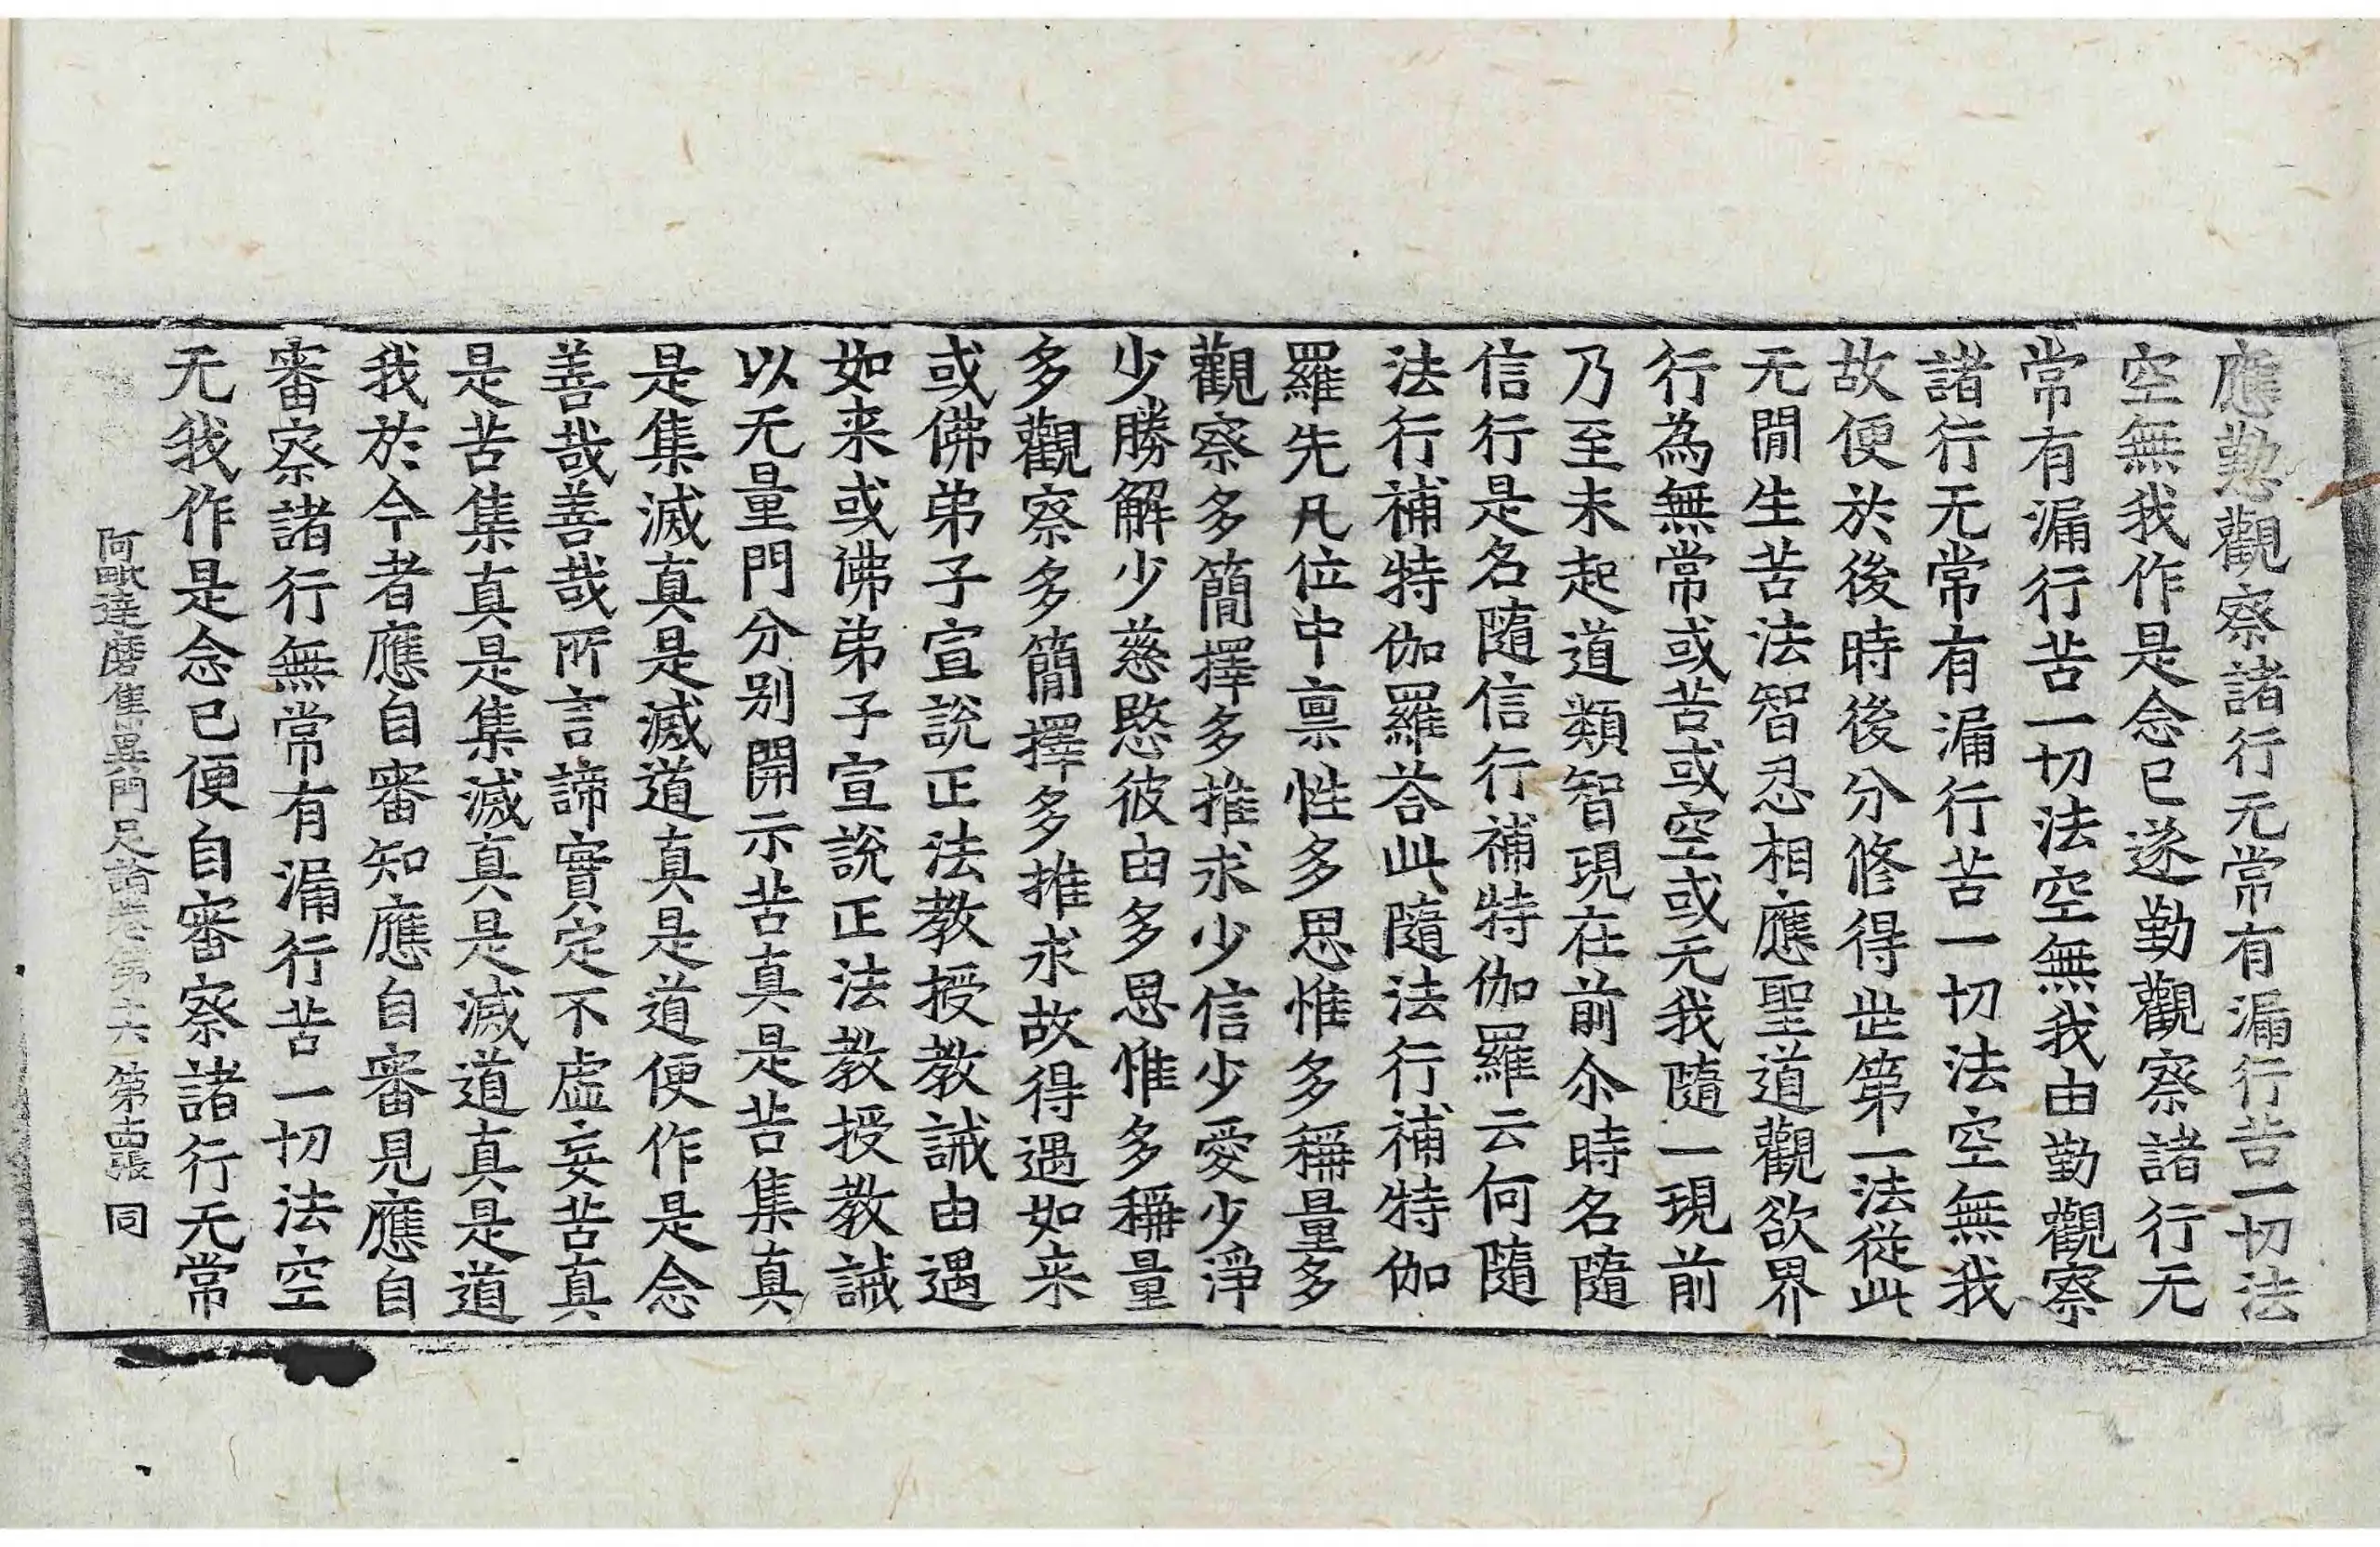 應懃觀察諸行无常有漏行苦一切法
空無我作是念已遂勤觀察諸行无
常有漏行苦一切法空無我由勤觀察
諸行无常有漏行苦一切法空無我
故便於後時後分修得世第一法從此
无閒生苦法智忍相應聖道觀欲界
行為無常或苦或空或无我隨一現前
乃至未起道類智現在前尒時名隨
信行是名隨信行補特伽羅云何隨
法行補特伽羅荅此隨法行補特伽
羅先凡位中禀性多思惟多稱量多
觀察多簡擇多推求少信少愛少淨
少勝解少慈愍彼由多思惟多稱量
多觀察多簡擇多推求故得遇如来
或佛弟子宣說正法教授教誡由遇
如来或佛弟子宣說正法教授教誡
以无量門分别開示苦真是苦集真
是集滅真是滅道真是道便作是念
善哉善哉所言諦實定不虛妄苦真
是苦集真是集滅真是滅道真是道
我於今者應自審知應自審見應自
審察諸行無常有漏行苦一切法空
无我作是念已便自審察諸行无常
阿毗達磨集異門足論卷第十六 第十四張 同